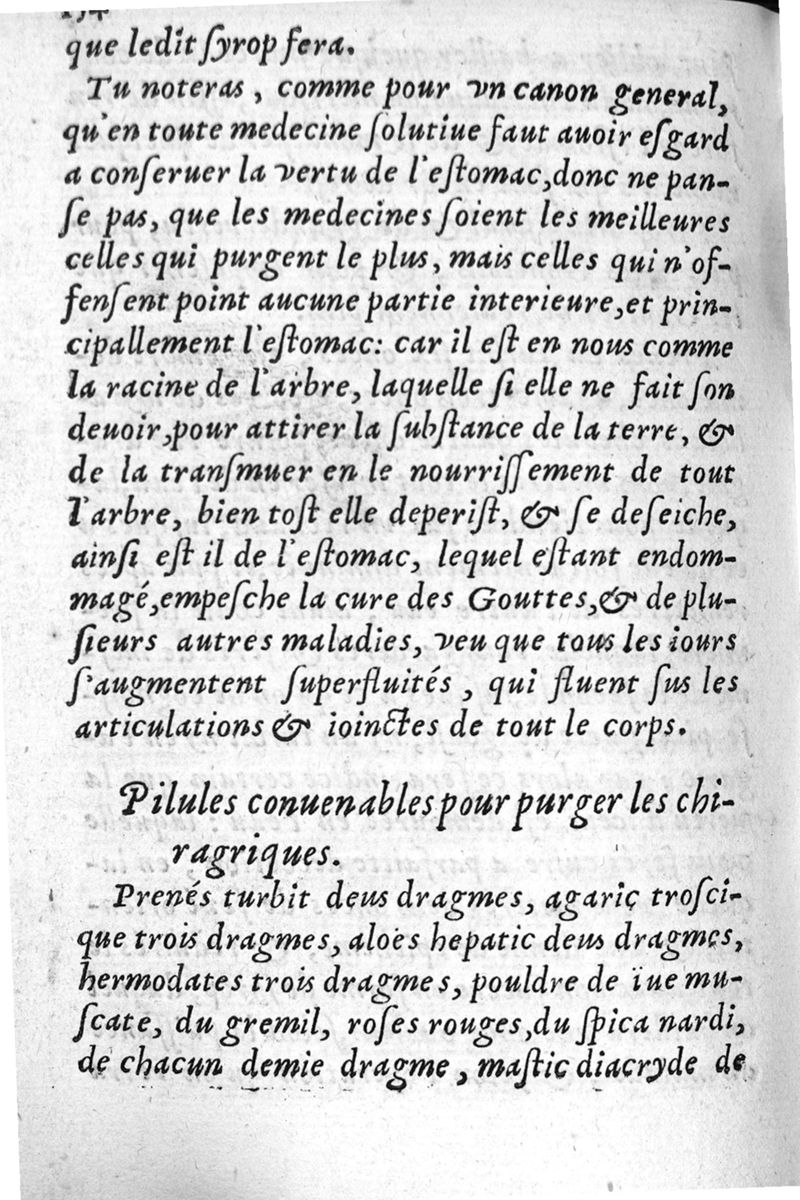 que ledit ſyrop fera.
Tu noteras, comme pour vn canon general,
qu'en toute medecine ſolutiue faut auoir eſgard
a conſeruer la vertu de l'eſtomac,donc ne pan-
ſe pas, que les medecines ſoient les meilleures
celles qui purgent le plus, mais celles qui n'of-
fenſent point aucune partie interieure,et prin-
cipallement l'eſtomac: car il eſt en nous comme
la racine de l'arbre, laquelle ſi elle ne fait ſon
deuoir,pour attirer la ſubſtance de la terre, &
de la tranſmuer en le nourriſſement de tout
l'arbre, bien toſt elle deperiſt, & ſe deſeiche,
ainſi eſt il de l'eſtomac, lequel eſtant endom-
magé,empeſche la cure des Gouttes,& de plu-
ſieurs autres maladies, veu que tous les iours
ſ'augmentent ſuperfluités, qui fluent ſus les
articulations & ioinctes de tout le corps.
Pilules conuenables pour purger les chi-
ragriques.
Prenés turbit deus dragmes, agaric troſci-
que trois dragmes, aloës hepatic deus dragmes,
hermodates trois dragmes, pouldre de ïue mu-
ſcate, du gremil, roſes rouges,du ſpica nardi,
de chacun demie dragme, maſtic diacryde de